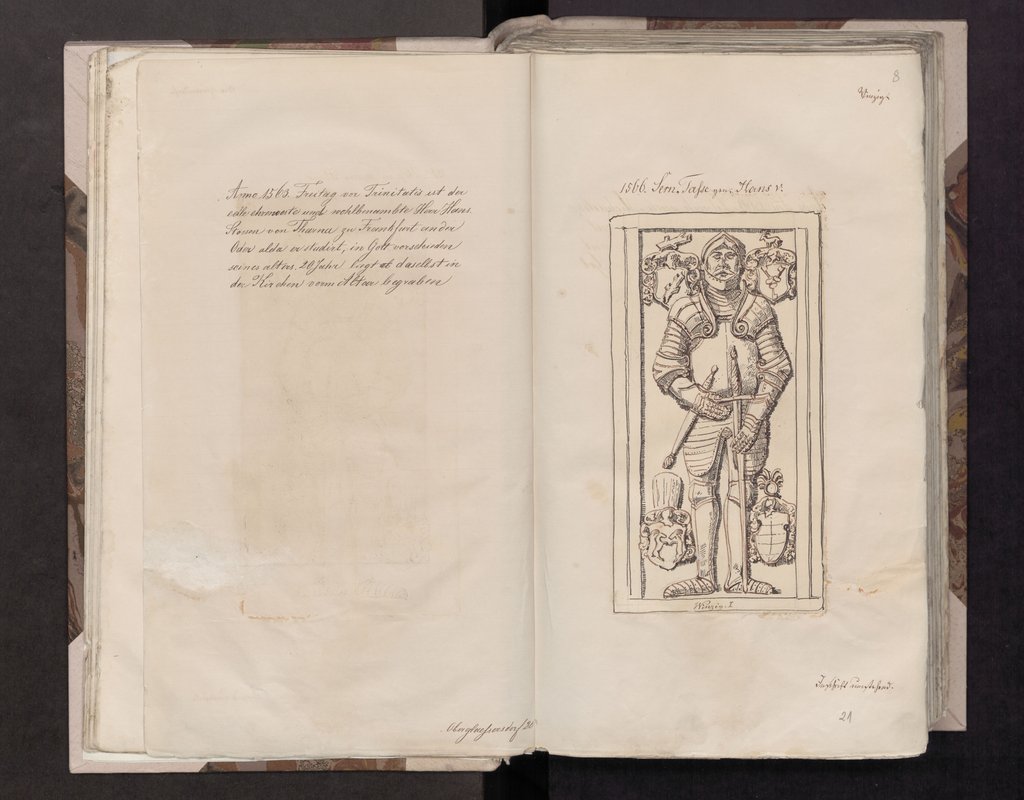 Anno 1563. Freitag vor Trinitatis ist der
edle ehrnveste und wohlbenambte Herr Hans
von Tharna zu Frankfurt an der
Oder alda er studirt, in Gott verschieden
seines alters 20 Jahr ligt al daselbst in
der Kirchen vorm Altar begraben
8
Winzig.
1566. Sem. Tasse gen. Hans v.
Winzig. I.
Inschrift umstehend.
21